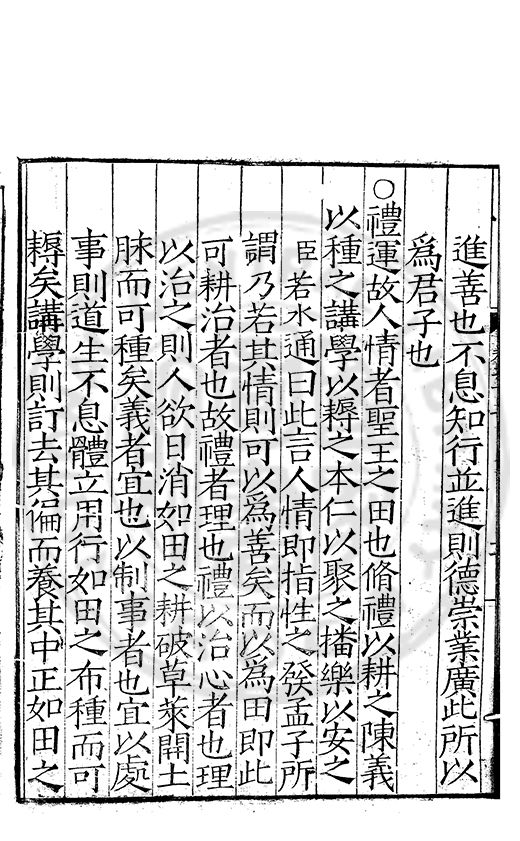 進善也不息知行並進則德崇業廣此所以
爲君子也
○禮運故人情者聖王之田也脩禮以耕之陳義
以種之講學以耨之本仁以聚之播樂以安之
臣若水通曰此言人情即指性之發孟子所
謂乃若其情則可以爲善矣而以爲田即此
可耕治者也故禮者理也禮以治心者也理
以治之則人欲日消如田之耕破草萊開土
脉而可種矣義者宜也以制事者也宜以處
事則道生不息體立用行如田之布種而可
耨矣講學則訂去其偏而養其中正如田之